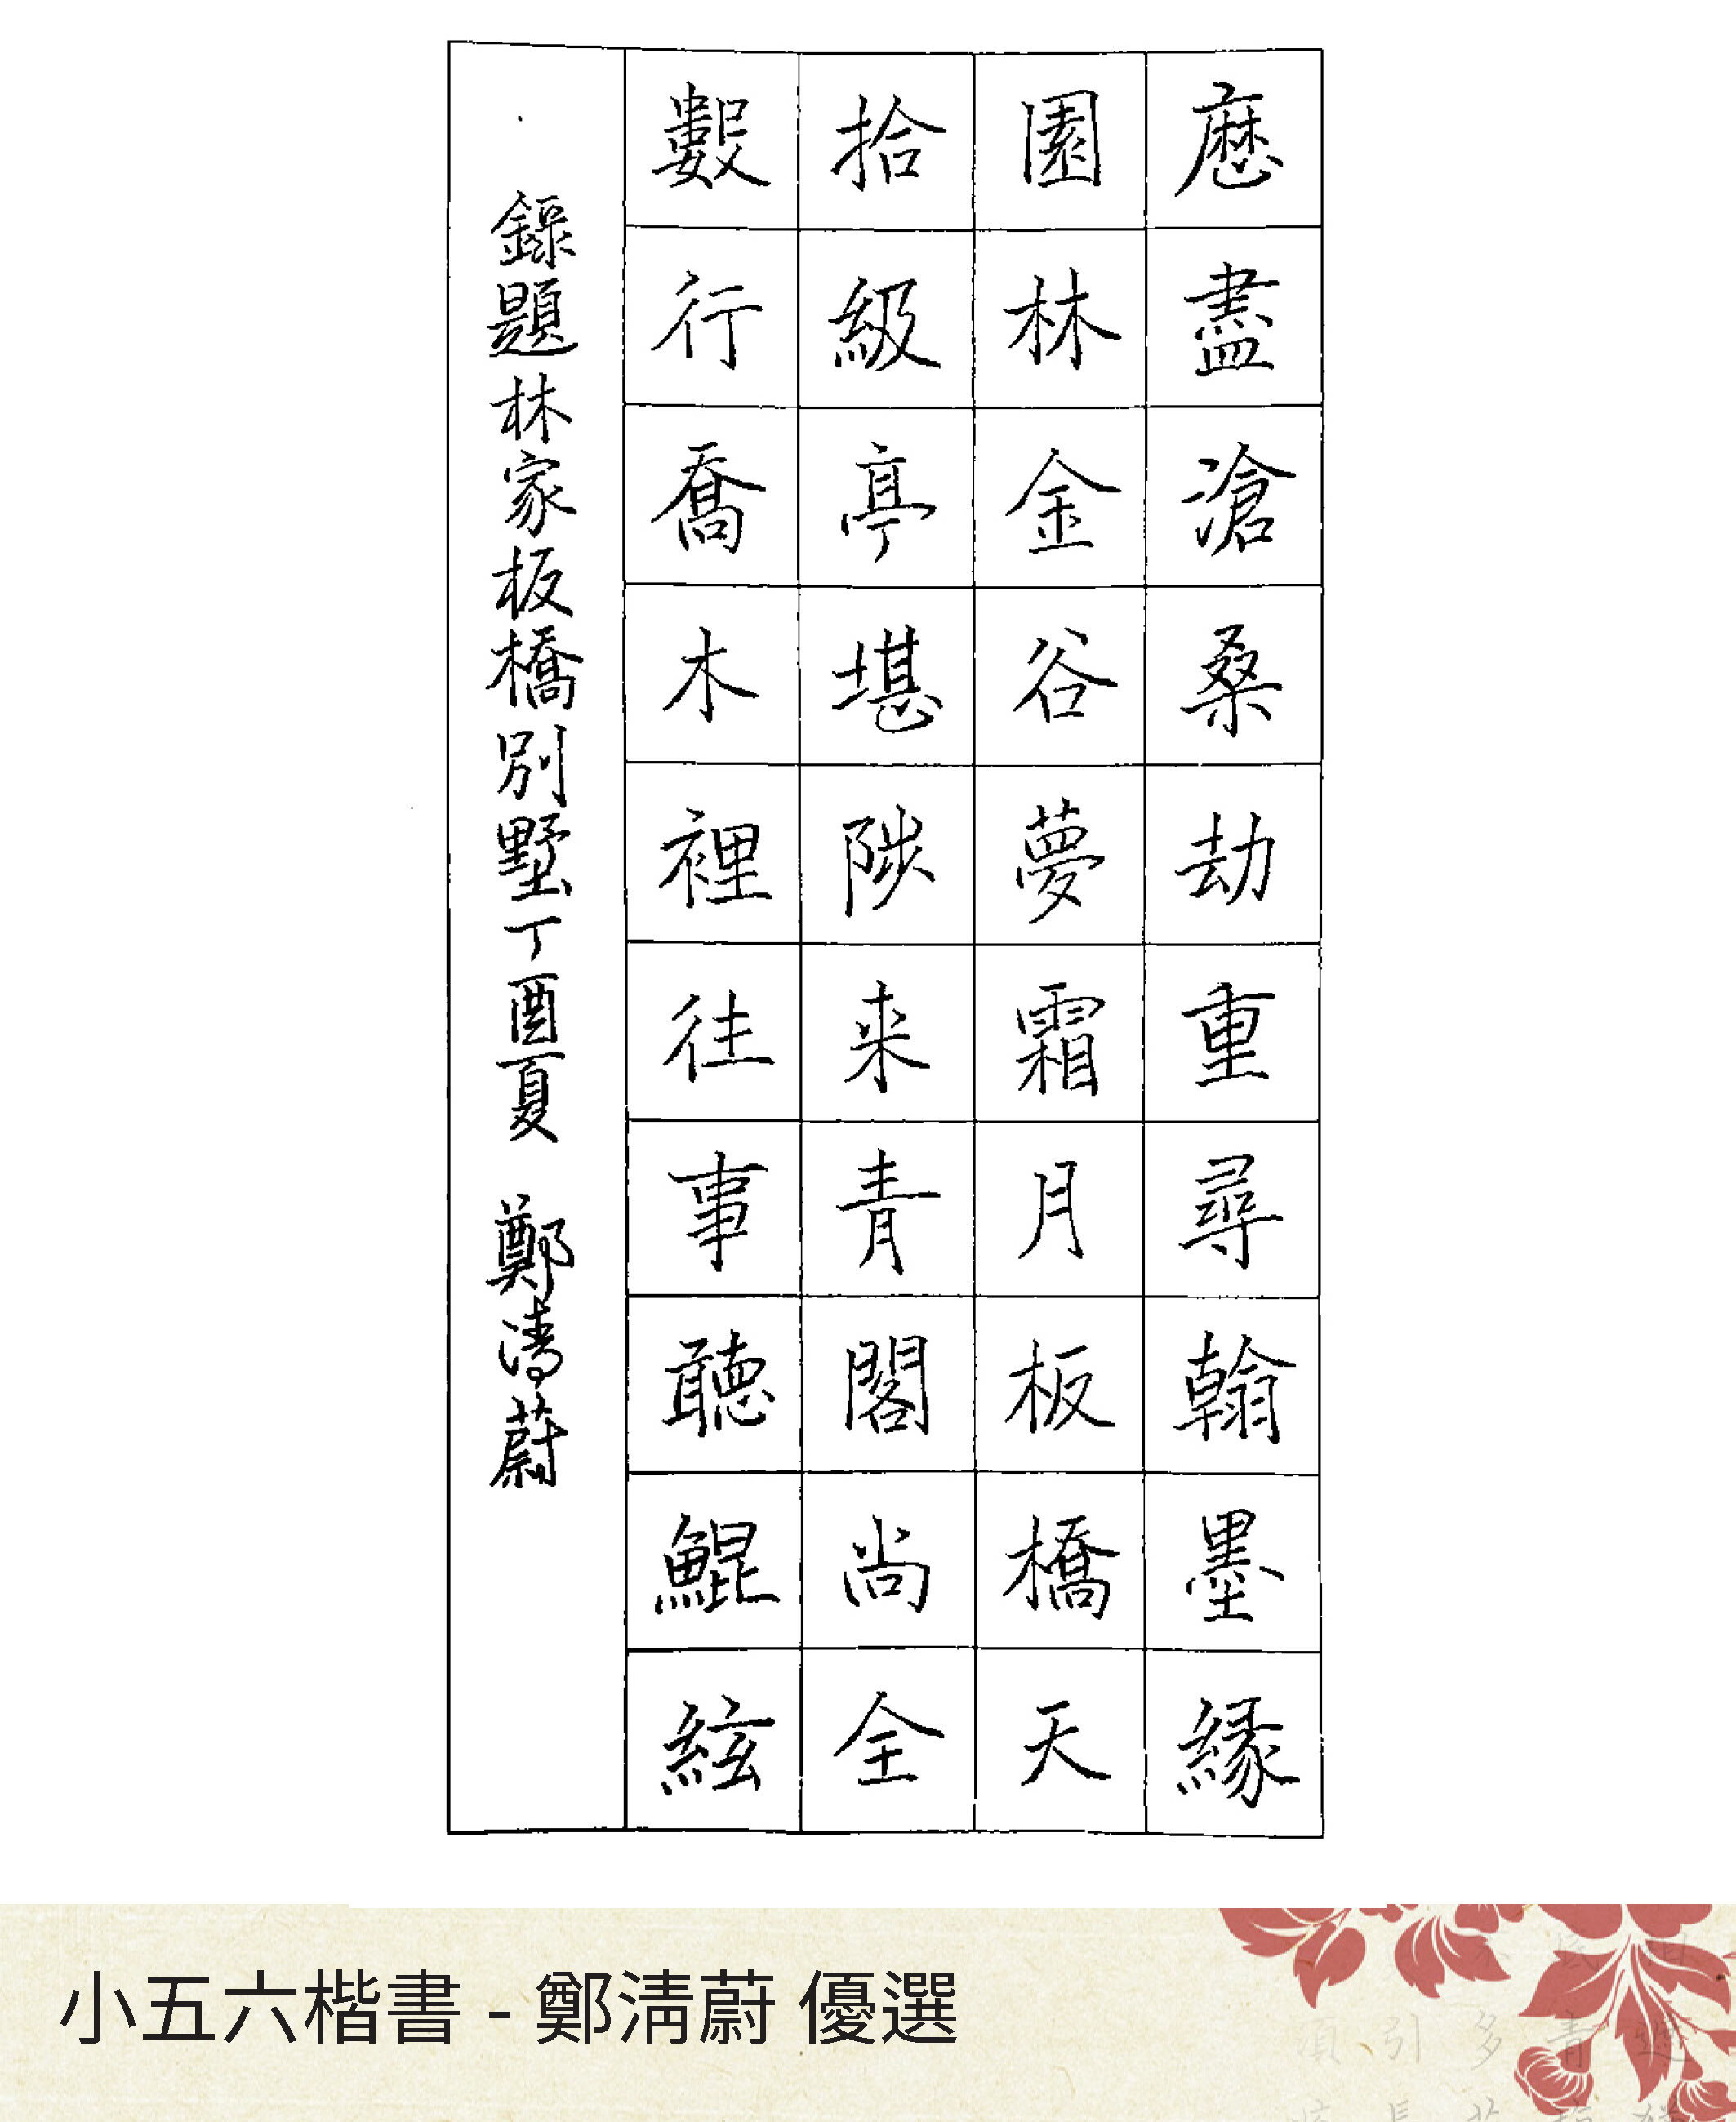 歷盡滄桑劫重尋翰墨緣
園林金谷夢霜月板橋天
拾級亭堪陟来青閣尚全
數行喬木裡往事聽鯤絃
錄題林家板橋別墅丁酉夏 鄭清蔚
小五六楷書 - 鄭清蔚 優選